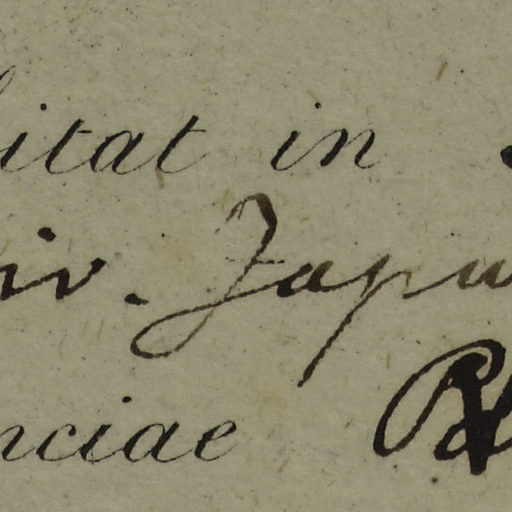 bitat in
iv. Japu
nciae